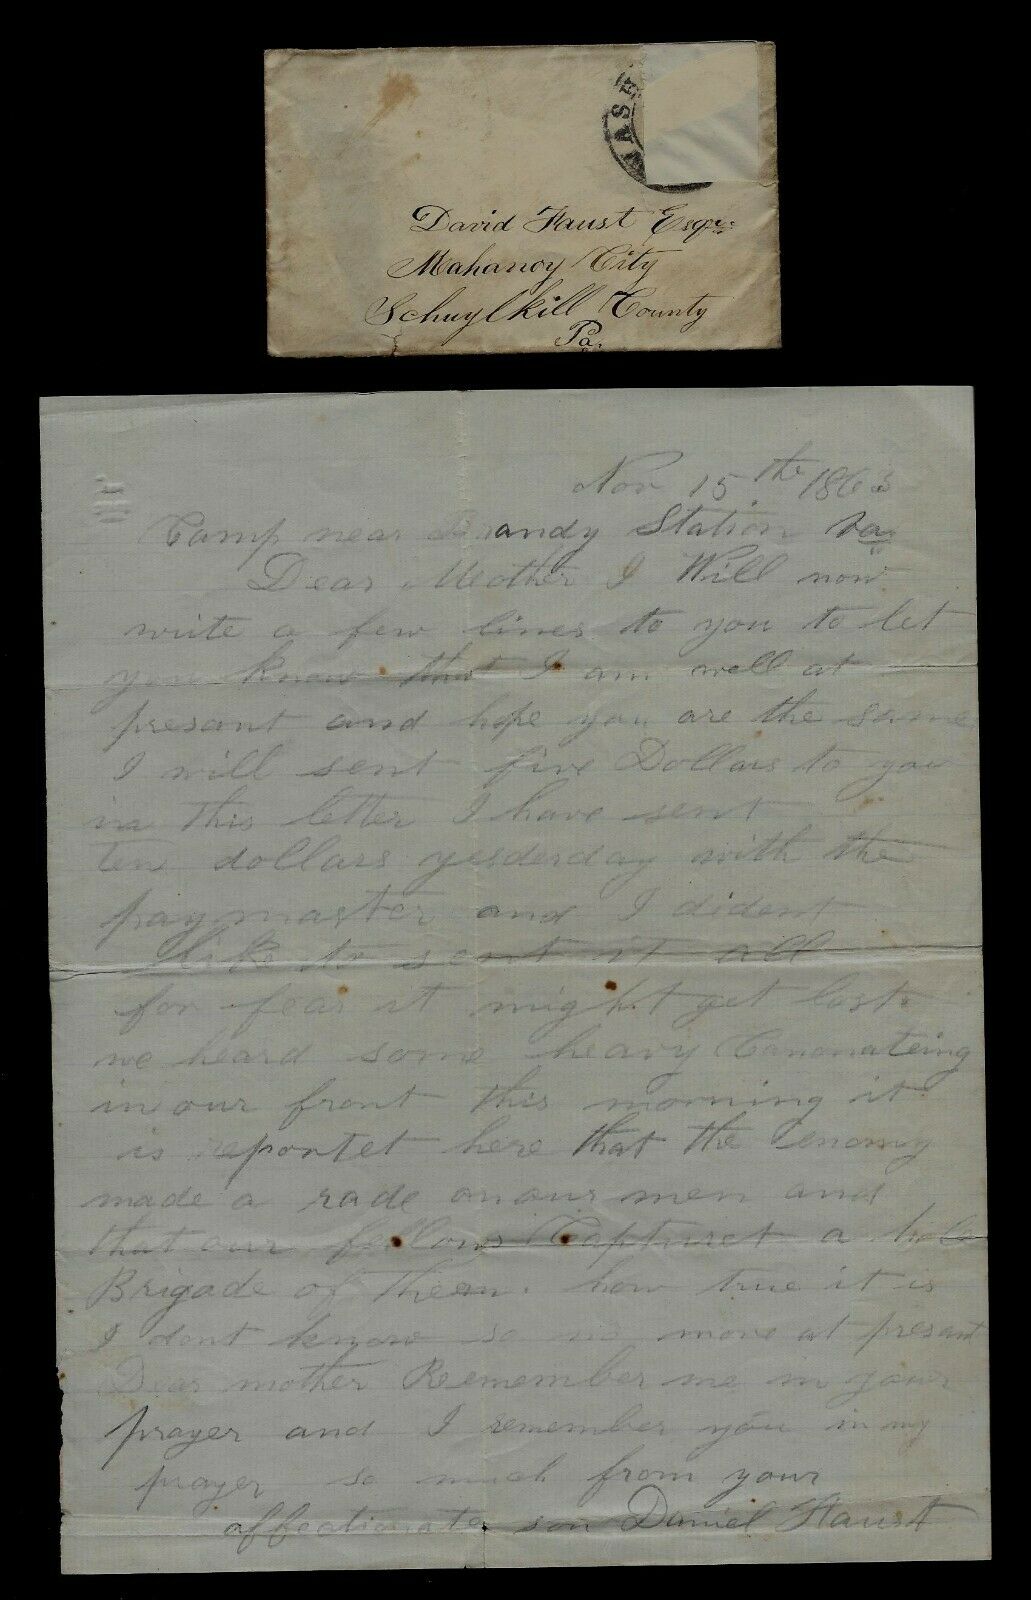 WASH
David Faust Esqr.
Mahanoy City
Schuylkill County
Pa.
Nov 15th 1863
Camp near Brandy Station Va
Dear Mother I Will now
write a few lines to you to let
you know that I am well at
presant and hope you are the same
I will sent five Dollars to you
in this letter I have sent
ten dollars yesderday with the
paymaster and I dident
like to sent it all
for fear it might get lost.
we heard some heavy Canonateing
in our front this morning it
is reportet here that the enomy
made a rade on our men and
that our fellows Capturet a hole
Brigade of them. how true it is
I dont know so no more at presant
Dear mother Remember me in your
prayer and I remember you in my
prayer so much from your
affectionate son Daniel Faust